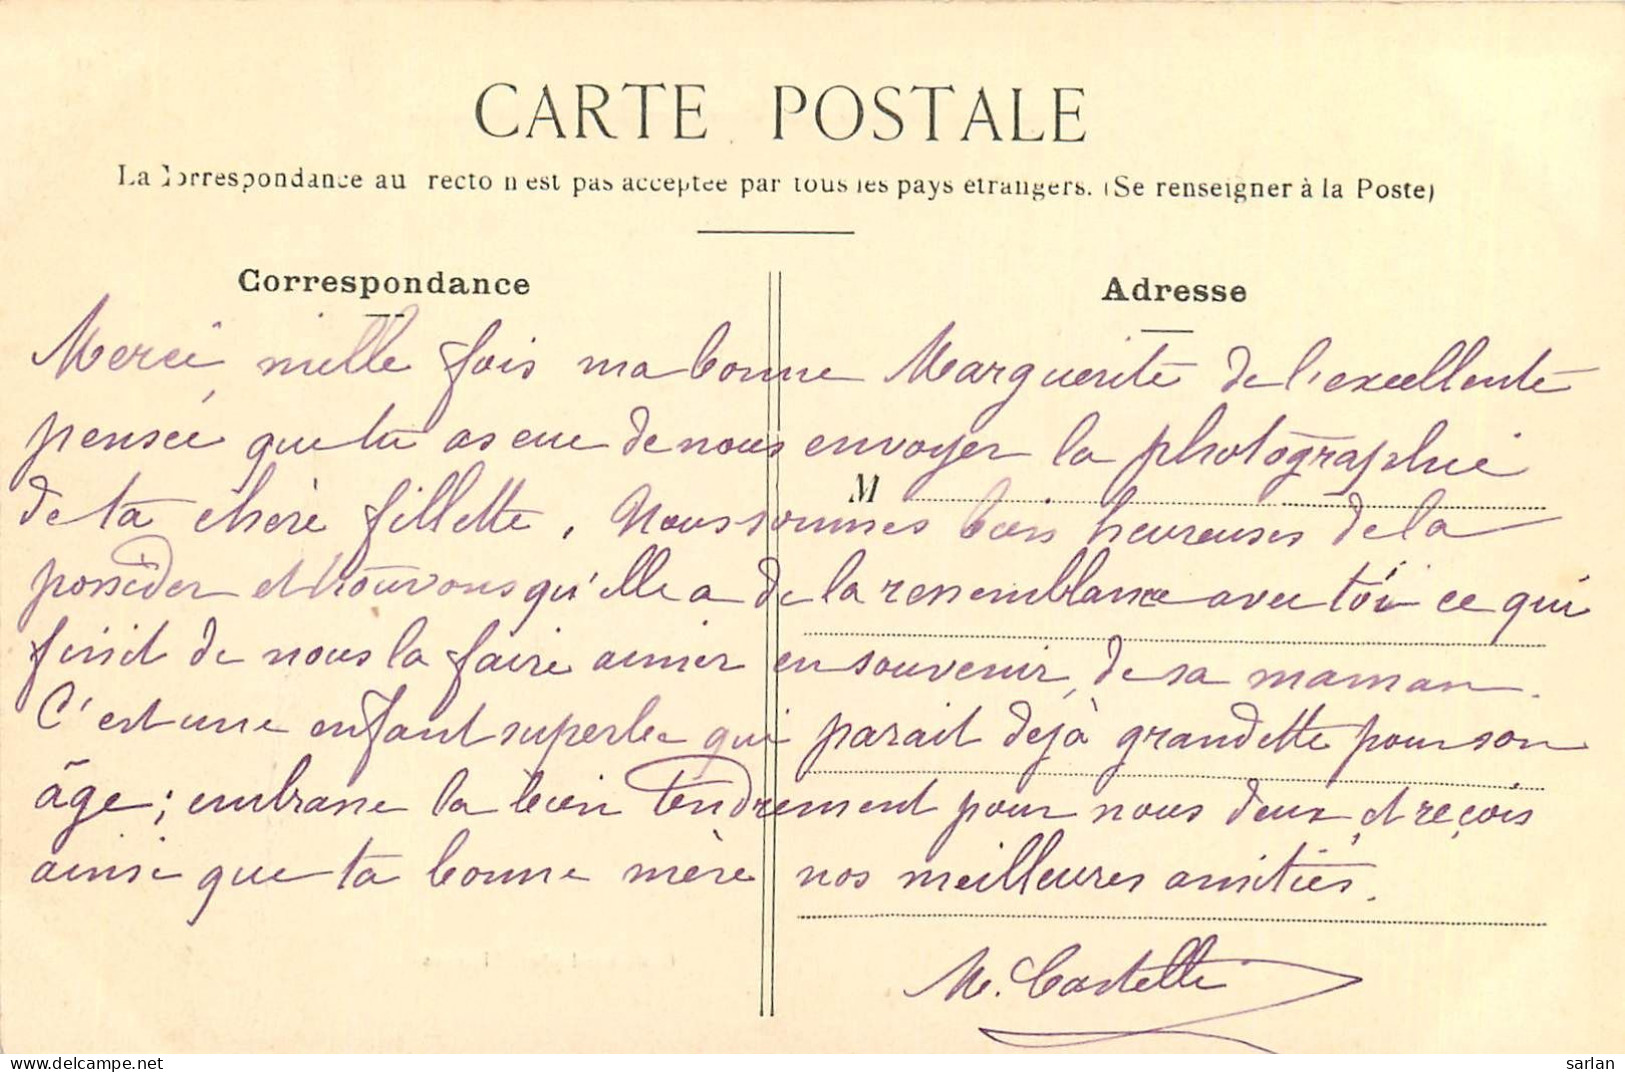 CARTE POSTALE
La Correspondance au recto n'est pas acceptée par tous les pays étrangers. (Se renseigner à la Poste)
Correspondance
Adresse
Merci mille fois ma bonne Marguerite de l'excellente
pensée que tu as eue de nous envoyer la photographie
M
de ta chère fillette. Nous sommes bien heureuses de la
posséder et trouvons qu'elle a de la ressemblance avec toi ce qui
finit de nous la faire aimer en souvenir de sa maman.
C'est une enfant superbe qui parait déjà grandette pour son
âge; embrasse la bien tendrement pour nous deux, et reçois
ainsi que ta bonne mère nos meilleures amitiés.
M. Castelli
sarlan